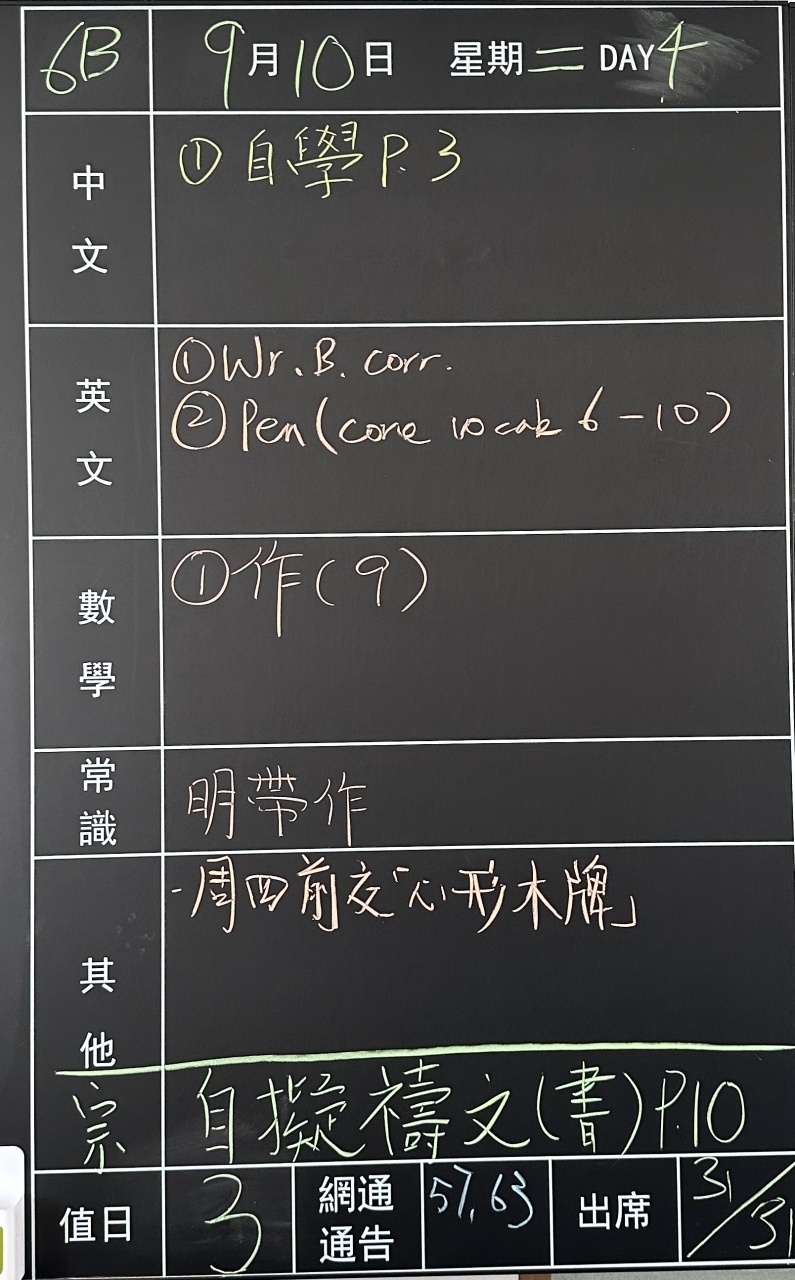 6B 9月10日 星期二 DAY 4
中文 ① 自學 P.3
英文 ① Wr. B. corr.
② Pen (core vocab 6-10)
數學 ① 作(9)
常識 明帶作
其他 -周四前交「心形木牌」
宗 自擬禱文(書) P.10
值日 3 網通通告 57,63 出席 31/31